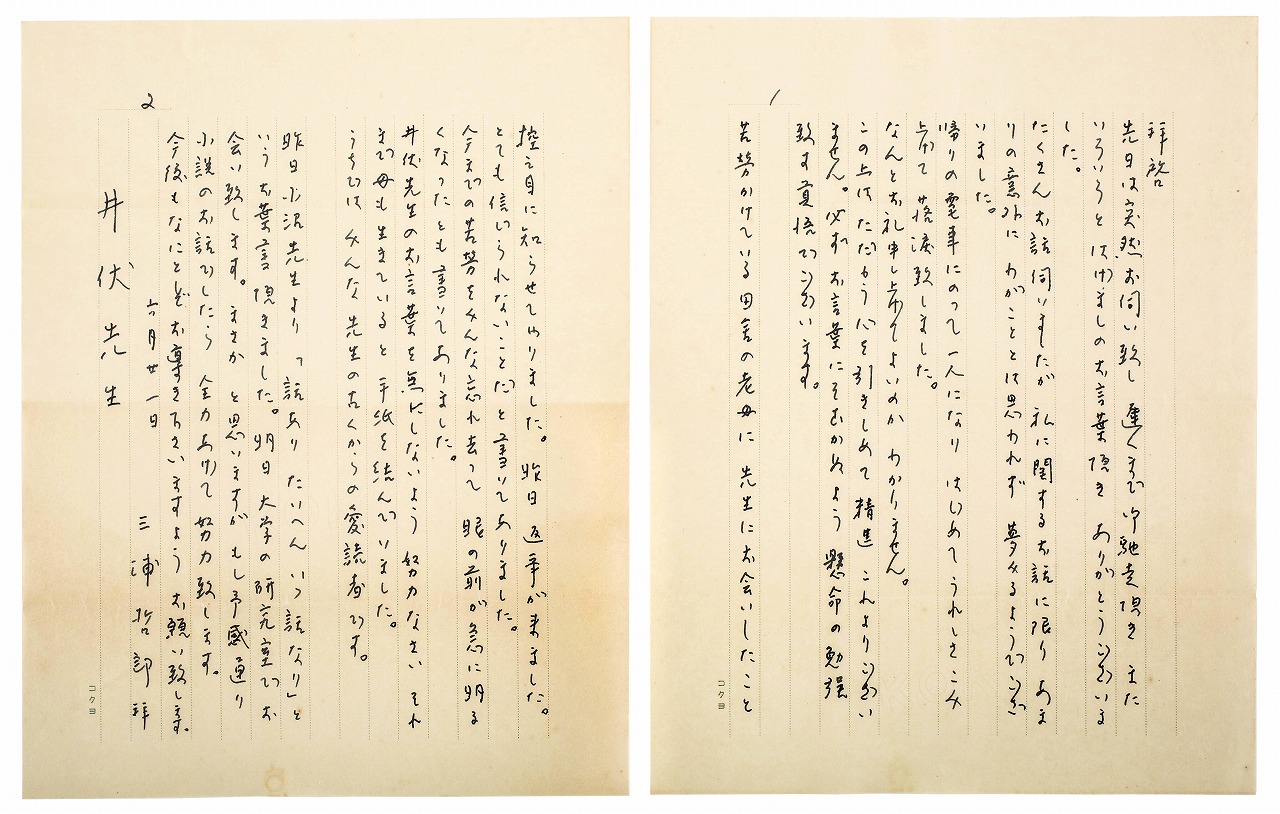 1
拝啓
先日は突然お伺い致し 遅くまで御馳走頂き また
いろいろとはげましのお言葉頂き ありがとうございま
した。
たくさんお話伺いましたが 私に関するお話に限り あま
りの意外に わがこととは思われず 夢みるようでござ
いました。
帰りの電車にのって一人になり はじめてうれしさこみ
上げて 落涙致しました。
なんとお礼申し上げてよいのか わかりません。
この上はただもう心を引きしめて 精進 これよりござい
ません。必ずお言葉にそむかぬよう 懸命の勉強
致す覚悟でございます。
苦労かけている田舎の老母に 先生にお会いしたこと
コクヨ
2
控え目に知らせてやりました。昨日 返事が来ました。
とても信じられないことだ と書いてありました。
今までの苦労をみんな忘れ去って 眼の前が急に明る
くなった とも書いてありました。
井伏先生のお言葉を無にしないよう 努力なさい それ
まで母も生きている と 手紙を結んでいました。
うちでは みんな 先生の古くからの愛読者です。
昨日小沼先生より「話あり たいへん いゝ話なり」と
いうお葉書頂きました。明日 大学の研究室でお
会い致します。まさか と思いますが もし予感通り
小説のお話でしたら 全力あげて 努力致します。
今後もなにとぞお導き下さいますよう お願い致します。
六月廿一日
三浦哲郎拝
井伏先生
コクヨ